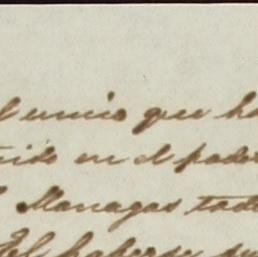 l unico que ha
nido en el poder
Managas tod
El haberse su